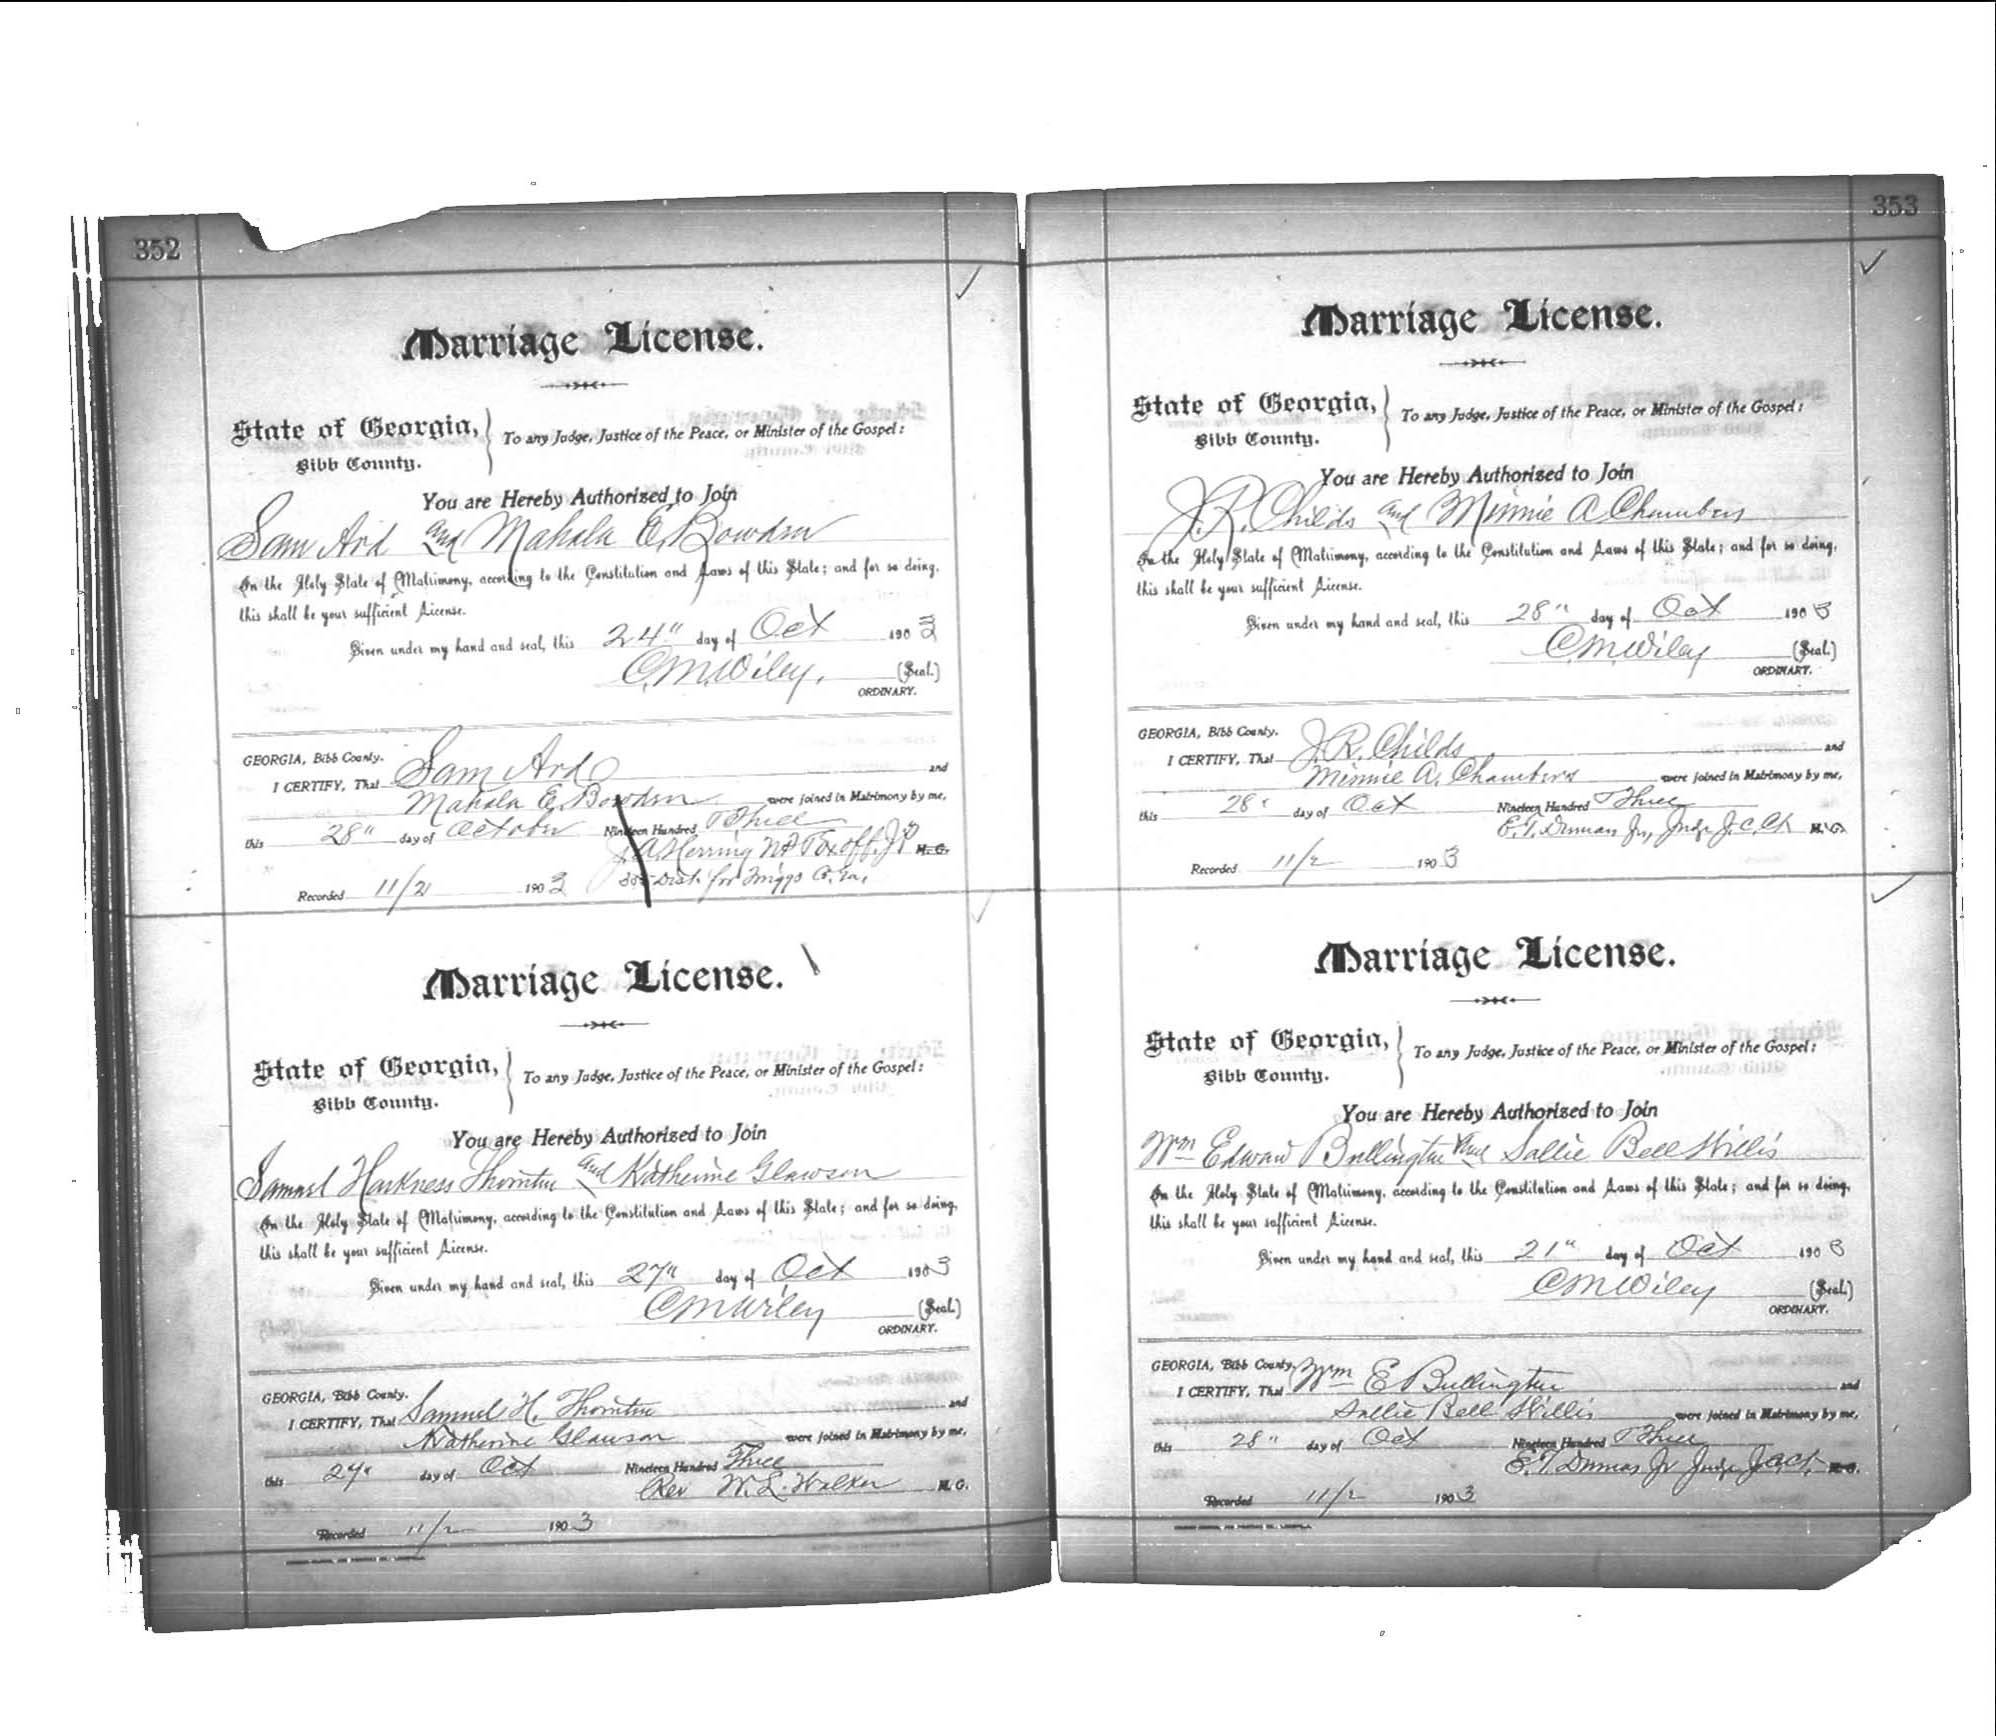 352
Marriage License.
State of Georgia,
Bibb County.
To any Judge, Justice of the Peace, or Minister of the Gospel:
You are Hereby Authorized to Join
Sam Ard and Mahala E. Bowden
In the Holy State of Matrimony, according to the Constitution and Laws of this State; and for so doing,
this shall be your sufficient License.
Given under my hand and seal, this 24" day of Oct 1903
C.M. Wiley, (Seal.)
ORDINARY.
GEORGIA, Bibb County.
I CERTIFY, That Sam Ard and
Mahala E. Bowden were joined in Matrimony by me,
this 28" day of October Nineteen Hundred Three
J. A. Herring J.P. M. G.
Dist. for Twiggs Co. Ga.
Recorded 11/2 1903
Marriage License.
State of Georgia,
Bibb County.
To any Judge, Justice of the Peace, or Minister of the Gospel:
You are Hereby Authorized to Join
Samuel Harkness Thornton and Katherine Glawson
In the Holy State of Matrimony, according to the Constitution and Laws of this State; and for so doing,
this shall be your sufficient License.
Given under my hand and seal, this 27" day of Oct 1903
C M Wiley (Seal.)
ORDINARY.
GEORGIA, Bibb County.
I CERTIFY, That Samuel H. Thornton and
Katherine Glawson were joined in Matrimony by me,
this day of Oct Nineteen Hundred Three
Rev W. L. Walker M. G.
Recorded 11/2 1903
353
Marriage License.
State of Georgia,
Bibb County.
To any Judge, Justice of the Peace, or Minister of the Gospel:
You are Hereby Authorized to Join
J. R. Childs and Minnie A Chambers
In the Holy State of Matrimony, according to the Constitution and Laws of this State; and for so doing,
this shall be your sufficient License.
Given under my hand and seal, this 28" day of Oct 1903
C.M. Wiley (Seal.)
ORDINARY.
GEORGIA, Bibb County.
I CERTIFY, That J. R. Childs and
Minnie A. Chambers were joined in Matrimony by me,
this 28" day of Oct Nineteen Hundred Three
E. T. Dumas Jr, Judge J. C. Ct. M. G.
Recorded 11/2 1903
Marriage License.
State of Georgia,
Bibb County.
To any Judge, Justice of the Peace, or Minister of the Gospel:
You are Hereby Authorized to Join
Wm Edward Bullington and Sallie Bell Willis
In the Holy State of Matrimony, according to the Constitution and Laws of this State; and for so doing,
this shall be your sufficient License.
Given under my hand and seal, this 21" day of Oct 1903
C M Wiley (Seal.)
ORDINARY.
GEORGIA, Bibb County.
I CERTIFY, That Wm E Bullington and
Sallie Bell Willis were joined in Matrimony by me,
this 28" day of Oct Nineteen Hundred Three
E. T. Dumas Jr Judge J. C. Ct. M. G.
Recorded 11/2 1903